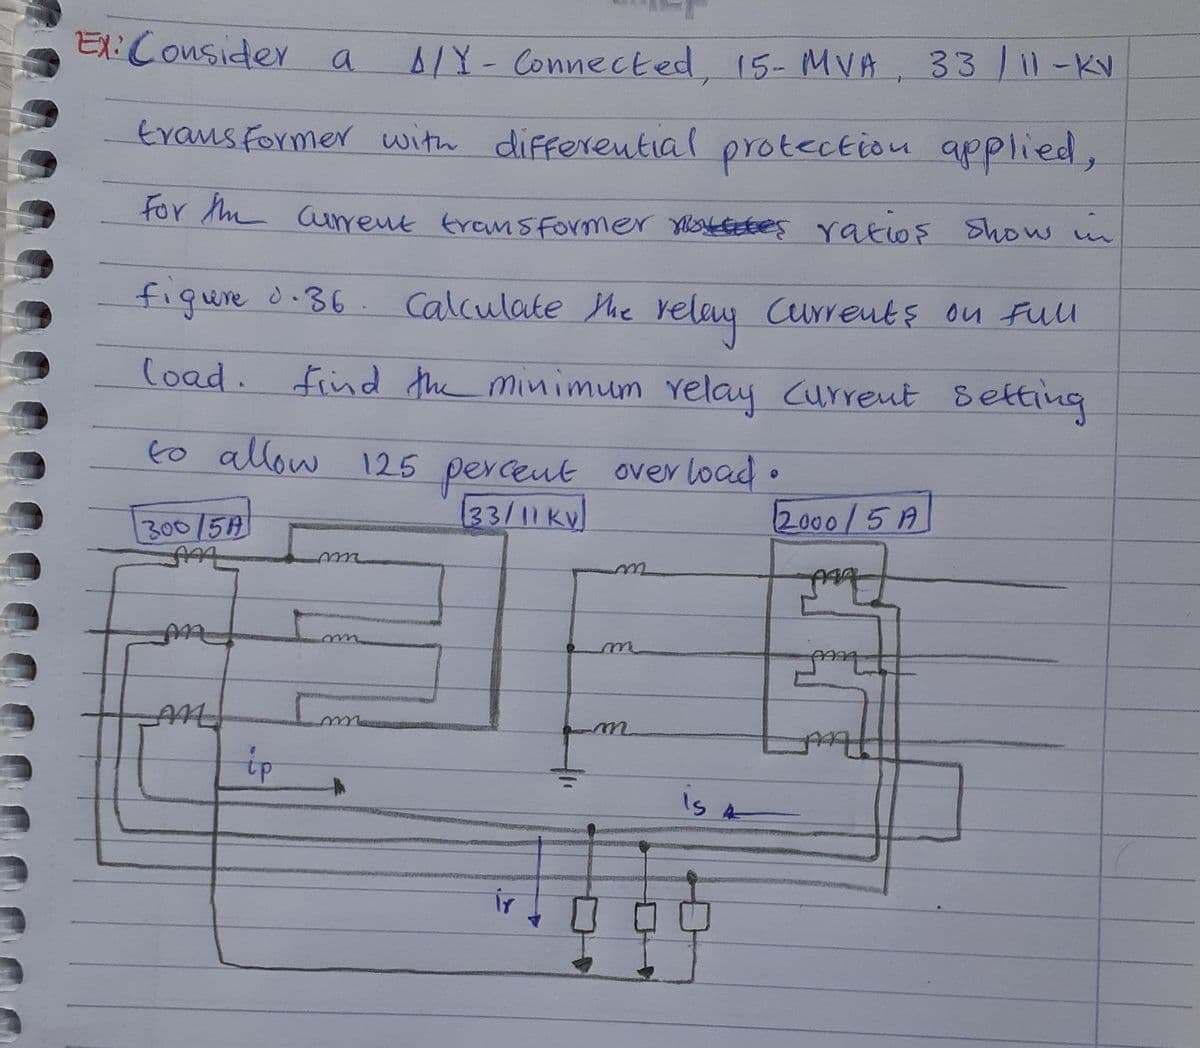 EX: Consider a Δ/Y - Connected, 15- MVA, 33/11-KV
transformer with differential protection applied,
For the current transformer ratios show in
figure 0.36. Calculate the relay currents on full
load. find the minimum relay current setting
to allow 125 percent overload.
300/5A
33/11 KV
2000/5 A
ip
is
ir